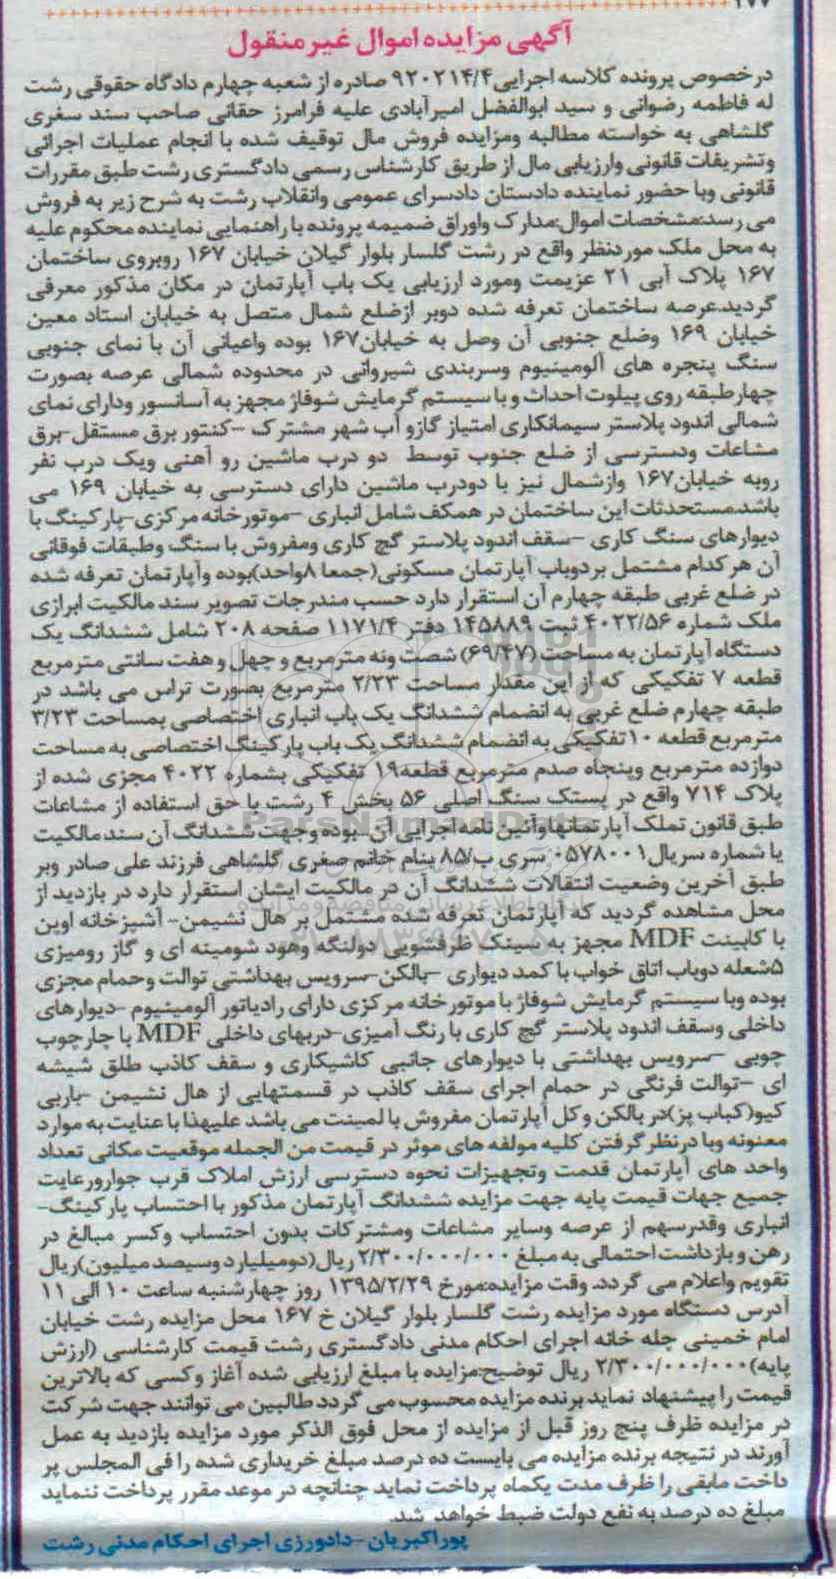 ۱۷۷
آگهی مزایده اموال غیرمنقول
درخصوص پرونده کلاسه اجرایی ۹۲۰۲۱۴/۴ صادره از شعبه چهارم دادگاه حقوقی رشت
له فاطمه رضوانی و سید ابوالفضل امیرآبادی علیه فرامرز حقانی صاحب سند سغری
گلشاهی به خواسته مطالبه ومزایده فروش مال توقیف شده با انجام عملیات اجرائی
وتشریفات قانونی وارزیابی مال از طریق کارشناس رسمی دادگستری رشت طبق مقررات
قانونی وبا حضور نماینده دادستان دادسرای عمومی وانقلاب رشت به شرح زیر به فروش
می رسد:مشخصات اموال:مدارک واوراق ضمیمه پرونده با راهنمایی نماینده محکوم علیه
به محل ملک موردنظر واقع در رشت گلسار بلوار گیلان خیابان ۱۶۷ روبروی ساختمان
۱۶۷ پلاک آبی ۲۱ عزیمت ومورد ارزیابی یک باب آپارتمان در مکان مذکور معرفی
گردید.عرصه ساختمان تعرفه شده دوبر ازضلع شمال متصل به خیابان استاد معین
خیابان ۱۶۹ وضلع جنوبی آن وصل به خیابان۱۶۷ بوده واعیانی آن با نمای جنوبی
سنگ پنجره های آلومینیوم وسربندی شیروانی در محدوده شمالی عرصه بصورت
چهارطبقه روی پیلوت احداث و با سیستم گرمایش شوفاژ مجهز به آسانسور ودارای نمای
شمالی اندود پلاستر سیمانکاری امتیاز گازو آب شهر مشترک -کنتور برق مستقل-برق
مشاعات ودسترسی از ضلع جنوب توسط دو درب ماشین رو آهنی ویک درب نفر
روبه خیابان۱۶۷ وازشمال نیز با دودرب ماشین دارای دسترسی به خیابان ۱۶۹ می
باشد.مستحدثات این ساختمان در همکف شامل انباری -موتورخانه مرکزی-پارکینگ با
دیوارهای سنگ کاری -سقف اندود پلاستر گچ کاری ومفروش با سنگ وطبقات فوقانی
آن هرکدام مشتمل بردوباب آپارتمان مسکونی(جمعا ۸واحد)بوده وآپارتمان تعرفه شده
در ضلع غربی طبقه چهارم آن استقرار دارد حسب مندرجات تصویر سند مالکیت ابرازی
ملک شماره ۴۰۲۲/۵۶ ثبت ۱۴۵۸۸۹ دفتر ۱۱۷۱/۴ صفحه ۲۰۸ شامل ششدانگ یک
دستگاه آپارتمان به مساحت (۶۹/۴۷) شصت ونه مترمربع و چهل و هفت سانتی مترمربع
قطعه ۷ تفکیکی که از این مقدار مساحت ۲/۲۳ مترمربع بصورت تراس می باشد در
طبقه چهارم ضلع غربی به انضمام ششدانگ یک باب انباری اختصاصی بمساحت ۳/۲۳
مترمربع قطعه ۱۰تفکیکی به انضمام ششدانگ یک باب پارکینگ اختصاصی به مساحت
دوازده مترمربع وپنجاه صدم مترمربع قطعه۱۹ تفکیکی بشماره ۴۰۲۲ مجزی شده از
پلاک ۷۱۴ واقع در پستک سنگ اصلی ۵۶ بخش ۴ رشت با حق استفاده از مشاعات
طبق قانون تملک آپارتمانهاوآئین نامه اجرایی آن بوده وجهت ششدانگ آن سند مالکیت
با شماره سریال۰۵۷۸۰۰۱ سری ب/۸۵ بنام خانم صغری گلشاهی فرزند علی صادر وبر
طبق آخرین وضعیت انتقالات ششدانگ آن در مالکیت ایشان استقرار دارد در بازدید از
محل مشاهده گردید که آپارتمان تعرفه شده مشتمل بر هال نشیمن- آشپزخانه اوپن
با کابینت MDF مجهز به سینک ظرفشویی دولنگه وهود شومینه ای و گاز رومیزی
۵شعله دوباب اتاق خواب با کمد دیواری -بالکن-سرویس بهداشتی توالت وحمام مجزی
بوده وبا سیستم گرمایش شوفاژ با موتورخانه مرکزی دارای رادیاتور آلومینیوم -دیوارهای
داخلی وسقف اندود پلاستر گچ کاری با رنگ آمیزی-دربهای داخلی MDF با چارچوب
چوبی -سرویس بهداشتی با دیوارهای جانبی کاشیکاری و سقف کاذب طلق شیشه
ای -توالت فرنگی در حمام اجرای سقف کاذب در قسمتهایی از هال نشیمن -باربی
کیو(کباب پز)در بالکن و کل آپارتمان مفروش با لمینت می باشد علیهذا با عنایت به موارد
معنونه وبا درنظر گرفتن کلیه مولفه های موثر در قیمت من الجمله موقعیت مکانی تعداد
واحد های آپارتمان قدمت وتجهیزات نحوه دسترسی ارزش املاک قرب جوارورعایت
جمیع جهات قیمت پایه جهت مزایده ششدانگ آپارتمان مذکور با احتساب پارکینگ-
انباری وقدرسهم از عرصه وسایر مشاعات ومشترکات بدون احتساب وکسر مبالغ در
رهن و بازداشت احتمالی به مبلغ ۲/۳۰۰/۰۰۰/۰۰۰ ریال(دومیلیارد وسیصد میلیون)ریال
تقویم واعلام می گردد. وقت مزایده:مورخ ۱۳۹۵/۲/۲۹ روز چهارشنبه ساعت ۱۰ الی ۱۱
آدرس دستگاه مورد مزایده رشت گلسار بلوار گیلان خ ۱۶۷ محل مزایده رشت خیابان
امام خمینی چله خانه اجرای احکام مدنی دادگستری رشت قیمت کارشناسی (ارزش
پایه)۲/۳۰۰/۰۰۰/۰۰۰ ریال توضیح:مزایده با مبلغ ارزیابی شده آغاز وکسی که بالاترین
قیمت را پیشنهاد نماید برنده مزایده محسوب می گردد طالبین می توانند جهت شرکت
در مزایده ظرف پنج روز قبل از مزایده از محل فوق الذکر مورد مزایده بازدید به عمل
آورند در نتیجه برنده مزایده می بایست ده درصد مبلغ خریداری شده را فی المجلس پر
داخت مابقی را ظرف مدت یکماه پرداخت نماید چنانچه در موعد مقرر پرداخت ننماید
مبلغ ده درصد به نفع دولت ضبط خواهد شد.
پوراکبریان -دادورزی اجرای احکام مدنی رشت
ParsNamadData